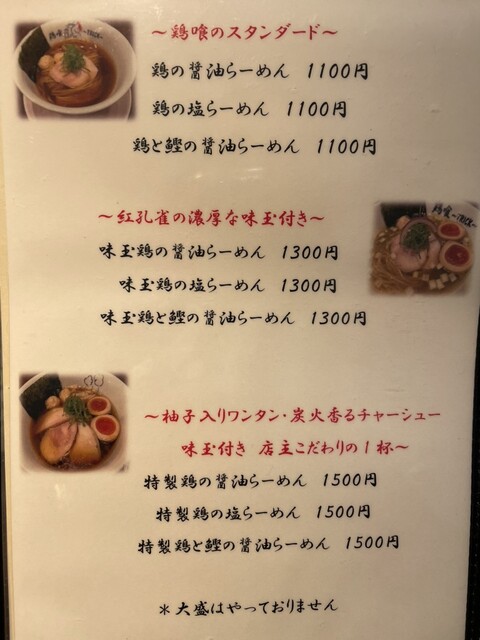 ～鶏喰のスタンダード～
鶏の醤油らーめん 1100円
鶏の塩らーめん 1100円
鶏と鰹の醤油らーめん 1100円
～紅孔雀の濃厚な味玉付き～
味玉鶏の醤油らーめん 1300円
味玉鶏の塩らーめん 1300円
味玉鶏と鰹の醤油らーめん 1300円
～柚子入りワンタン・炭火香るチャーシュー
味玉付き 店主こだわりの1杯～
特製鶏の醤油らーめん 1500円
特製鶏の塩らーめん 1500円
特製鶏と鰹の醤油らーめん 1500円
＊大盛はやっておりません